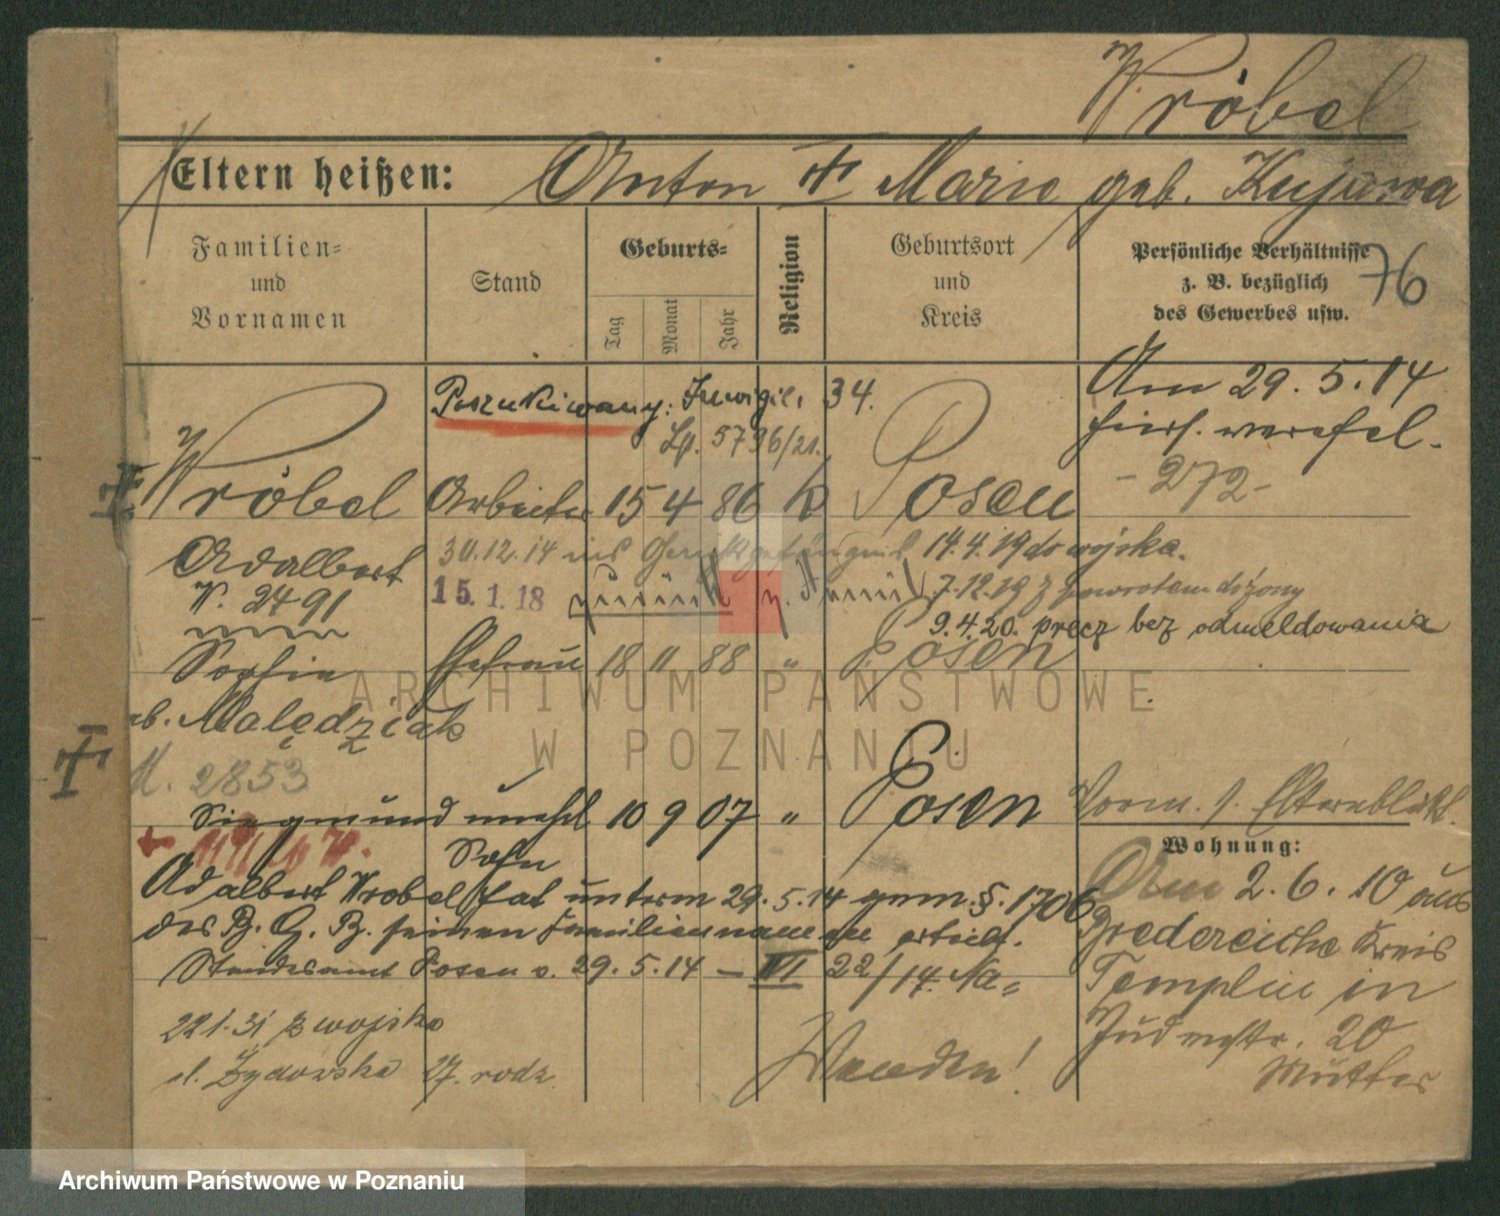 Wróbel
Eltern heißen: Anton Marie geb. Kujawa
Familien- und Vornamen
Stand
Geburts-
Tag Monat Jahr
Religion
Geburtsort und Kreis
Persönliche Verhältnisse z. B. bezüglich des Gewerbes usw.
76
Poszukiwany: Inwigil. 34.
Lp. 5736/21.
Am 29. 5. 14
hiers. verehel.
- 272 -
Wróbel Arbeiter 15 4 86 Posen
Adalbert 30.12.14 ins 14.4.19 do wojska.
W. 2491 15.1.18 zurück 7.12.19 z powrotem
9.4.20. precz bez odmeldowania
Sophie Ehefrau 18 11 88 " Posen
geb. Malędziak
M. 2853
Siegmund unehel 10 9 07 " Posen
Sohn
Wohnung:
Adalbert Wrobel hat unterm 29. 5. 14 gem. §. 1706
des B. G. B. seinen Familiennamen erteilt.
Standesamt Posen v. 29. 5. 14 - VI 22/14. Na=
Am 2. 6. 10 aus
Bredereiche Kreis
Templin in
Judenstr. 20
Mutter
22 1. 31 z wojska
ul. Żydowska 27. rodz.
Wenden!
ARCHIWUM PAŃSTWOWE
W POZNANIU
Archiwum Państwowe w Poznaniu